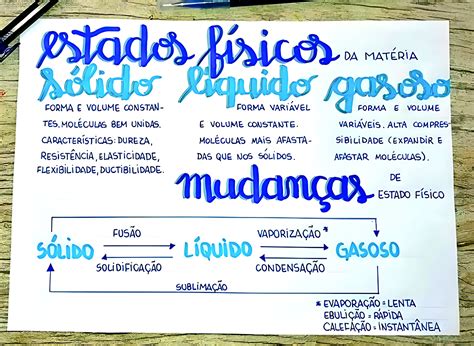 estados físicos DA MATÉRIA
sólido
FORMA E VOLUME CONSTAN-
TES, MOLÉCULAS BEM UNIDAS.
CARACTERÍSTICAS: DUREZA,
RESISTÊNCIA, ELASTICIDADE,
FLEXIBILIDADE, DUCTIBILIDADE.
líquido
FORMA VARIÁVEL
E VOLUME CONSTANTE.
MOLÉCULAS MAIS AFASTA-
DAS QUE NOS SÓLIDOS.
gasoso
FORMA E VOLUME
VARIÁVEIS. ALTA COMPRES-
SIBILIDADE (EXPANDIR E
AFASTAR MOLÉCULAS).
mudanças DE
ESTADO FÍSICO
FUSÃO VAPORIZAÇÃO *
SÓLIDO LÍQUIDO GASOSO
SOLIDIFICAÇÃO CONDENSAÇÃO
SUBLIMAÇÃO
* EVAPORAÇÃO = LENTA
EBULIÇÃO = RÁPIDA
CALEFAÇÃO = INSTANTÂNEA